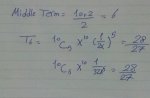 Middle Term = 10+2/2 = 6
T6 = 10C5 x^10 (1/2x)^5 = 28/27
10C5 x^10 1/32x^5 = 28/27